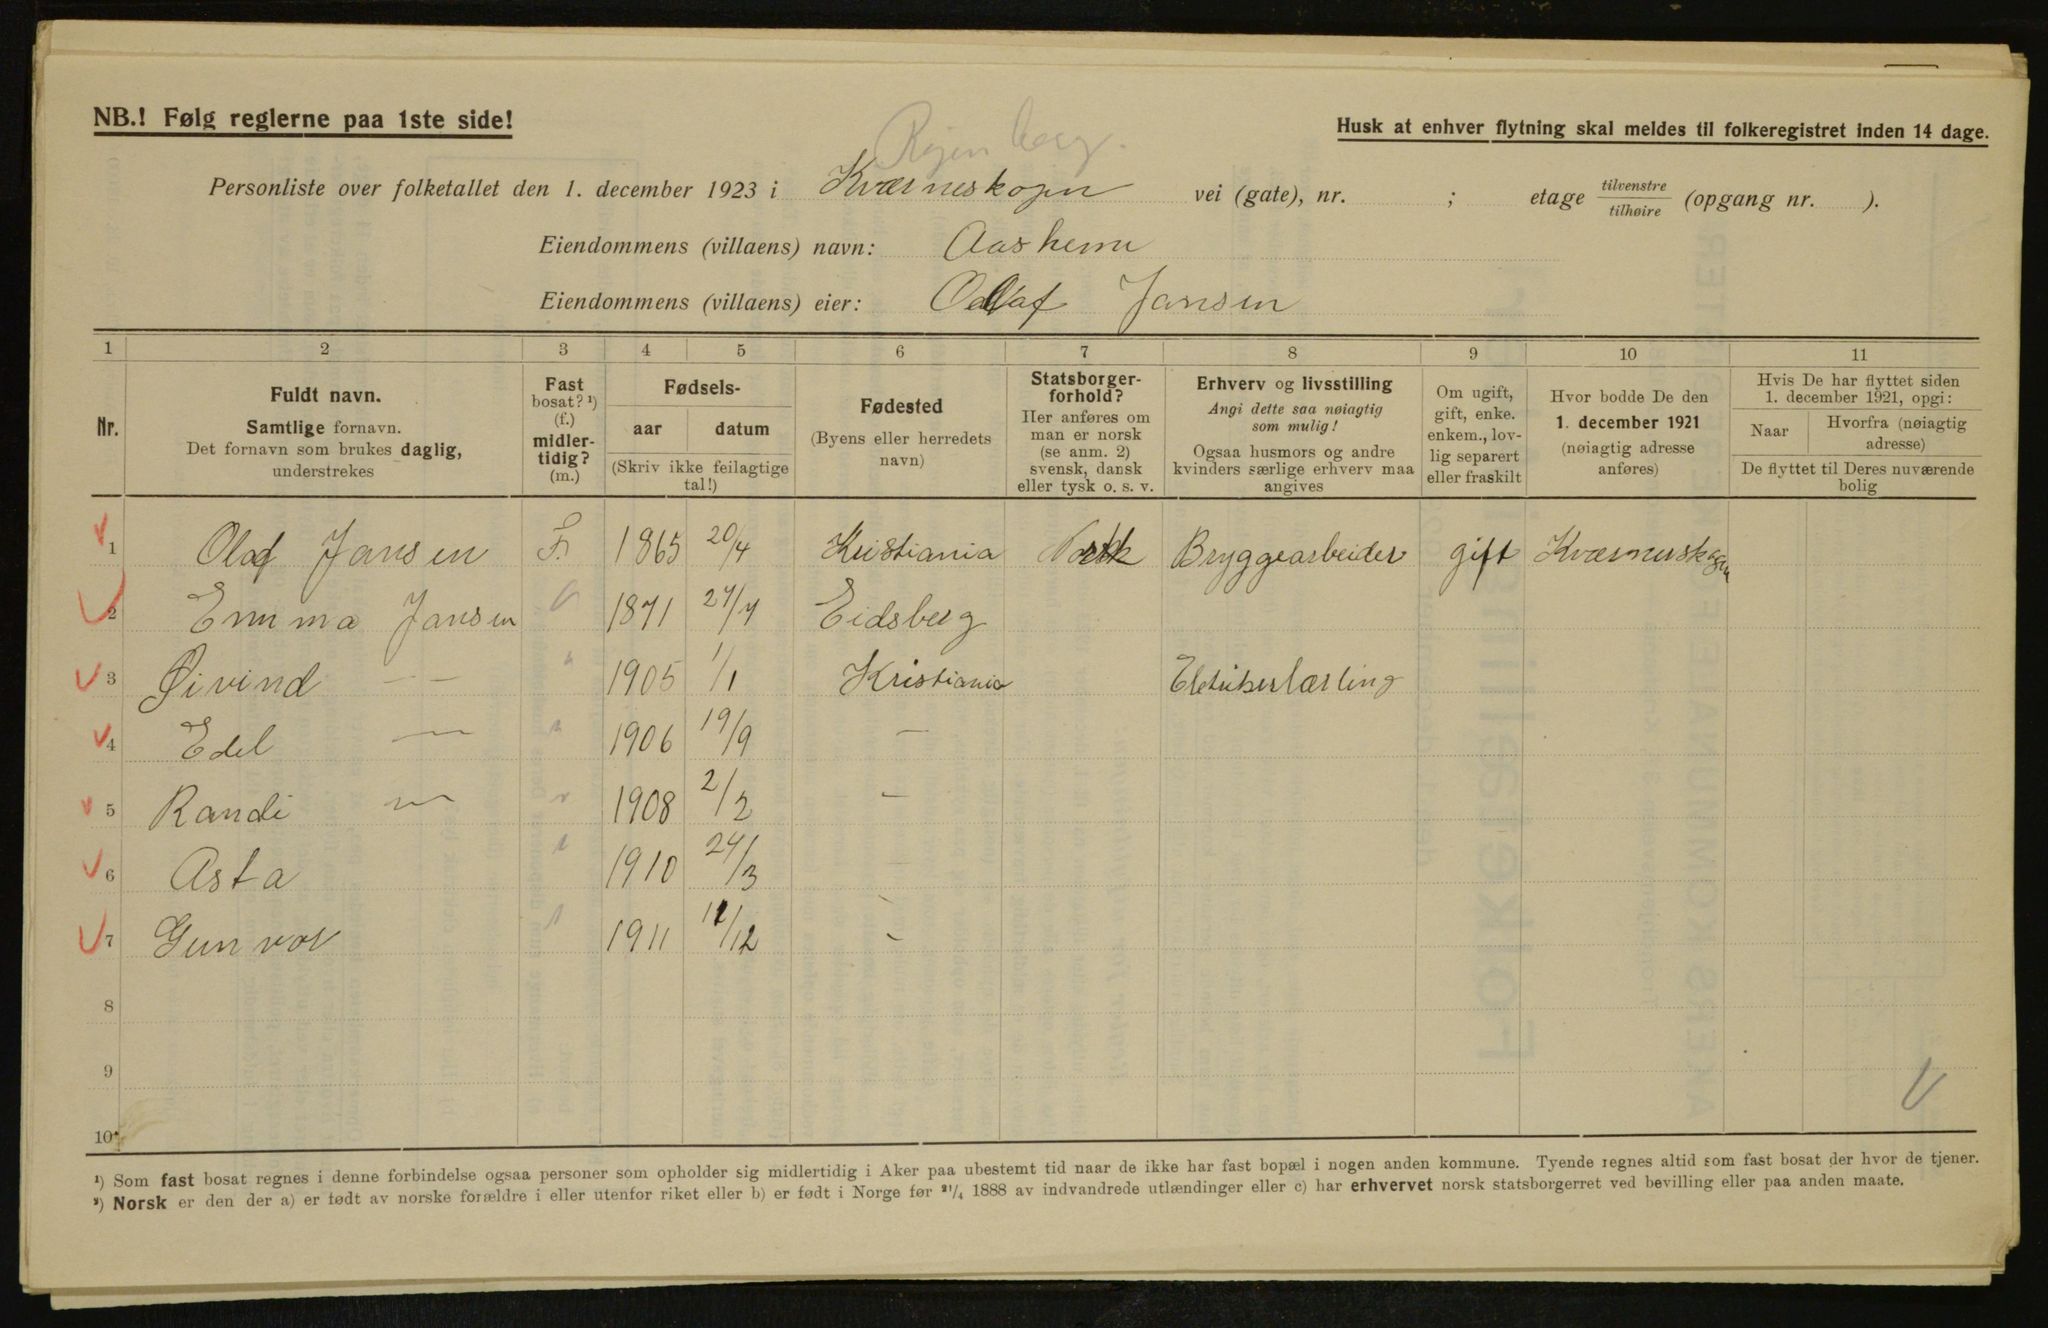 NB.! Følg reglerne paa 1ste side!
Husk at enhver flytning skal meldes til folkeregistret inden 14 dage.
Personliste over folketallet den 1. december 1923 i Kværneskogen vei (gate), nr. ; etage tilvenstre/tilhøire (opgang nr. ).
Eiendommens (villaens) navn: Aasheim
Eiendommens (villaens) eier: Olaf Jansen
1 2 3 4 5 6 7 8 9 10 11
Nr.
Fuldt navn.
Samtlige fornavn.
Det fornavn som brukes daglig,
understrekes
Fast
bosat? ¹)
(f.)
midler-
tidig?
(m.)
Fødsels-
aar datum
(Skriv ikke feilagtige
tal!)
Fødested
(Byens eller herredets
navn)
Statsborger-
forhold?
Her anføres om
man er norsk
(se anm. 2)
svensk, dansk
eller tysk o. s. v.
Erhverv og livsstilling
Angi dette saa nøiagtig
som mulig!
Ogsaa husmors og andre
kvinders særlige erhverv maa
angives
Om ugift,
gift, enke.
enkem., lov-
lig separert
eller fraskilt
Hvor bodde De den
1. december 1921
(nøiagtig adresse
anføres)
Hvis De har flyttet siden
1. december 1921, opgi:
Naar
Hvorfra (nøiagtig
adresse)
De flyttet til Deres nuværende
bolig
1 Olaf Jansen F. 1865 20/4 Kristiania Norsk Bryggearbeider gift Kværnerskogen
2 Emma Jansen " 1871 27/7 Eidsberg
3 Øivind — " 1905 1/1 Kristiania Eletrikerlærling
4 Edel — " 1906 19/9 —
5 Randi — " 1908 2/2 —
6 Asta " 1910 24/3 —
7 Gunvor " 1911 /12 —
8
9
10
¹) Som fast bosat regnes i denne forbindelse ogsaa personer som opholder sig midlertidig i Aker paa ubestemt tid naar de ikke har fast bopæl i nogen anden kommune. Tyende regnes altid som fast bosat der hvor de tjener.
²) Norsk er den der a) er født av norske forældre i eller utenfor riket eller b) er født i Norge før ²¹/₄ 1888 av indvandrede utlændinger eller c) har erhvervet norsk statsborgerret ved bevilling eller paa anden maate.